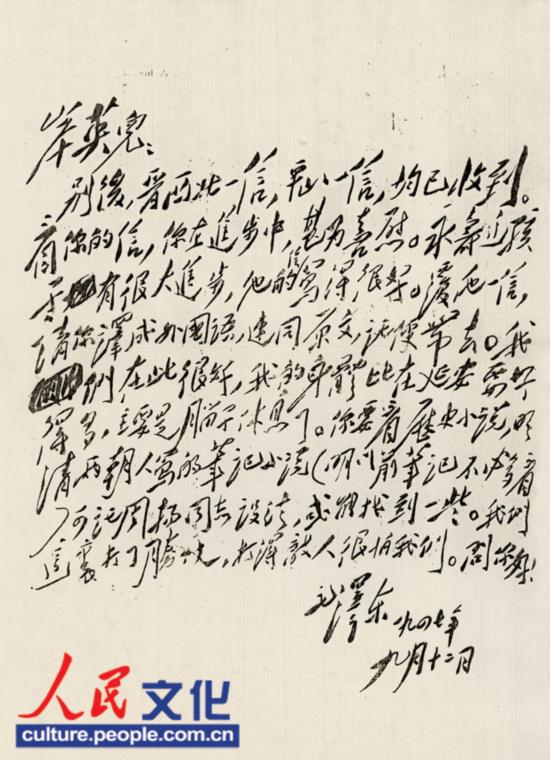 岸英兒：
別後，晉西北一信，平山一信，均已收到。
看你的信，你在進步中，甚为喜慰。永壽这孩
子有很大進步，他的信寫得很好。復他一信，
請你譯成外國語，連同原文，託便帶去。我
們在此很好，我的身體比在延安要好
得多，主要是脑子休息了。你要看歷史小説，明
清两朝人寫的筆記小説（明以前筆記不必多看），
可託周揚同志設法，或能找到一些。我們
這裏打了勝仗，打得敵人很怕我們。問你好！
毛澤东
一九四七年
九月十二日
人民文化
culture.people.com.cn